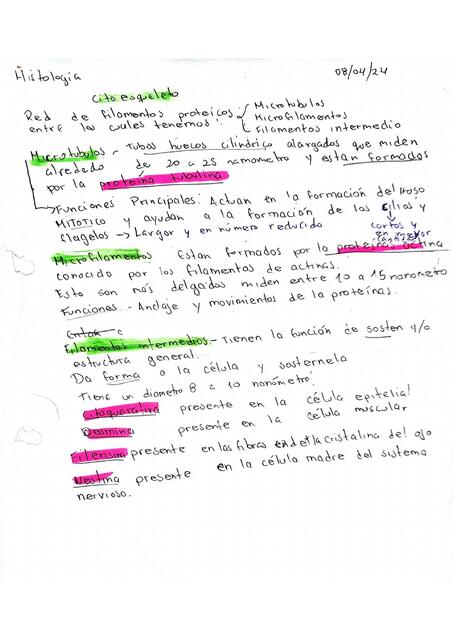 Histología 08/04/24
Citoesqueleto
Red de filamentos proteicos
entre los cuales tenemos:
Microtubulos
Microfilamentos
Filamentos intermedio
Microtubulos - Tubos huecos cilíndrico alargados que miden
alrededo de 20 a 25 namometro y estan formados
por la proteína tubulina
Funciones Principales: Actuan en la formación del Huso
MITOTICO y ayudan a la formación de los Cilios y
flagelos → Largor y en número reducido
cortos y
en mayor
Microfilamentos Estan formados por la proteínas actina
conocido por los filamentos de actinas.
Esto son más delgados miden entre 10 a 15 nanometro
Funciones - Anclaje y movimientos de la proteínas.
Filamentos intermedios - Tienen la función de sosten y/o
estructura general.
Da forma a la célula y sosternela
Tiene un diametro 8 a 10 nanómetro.
Citoqueratina presente en la célula epitelial
Desmina presente en la célula muscular
Filensina presente en las fibras de la cristalina del ojo
Nestina presente en la célula madre del sistema
nervioso.